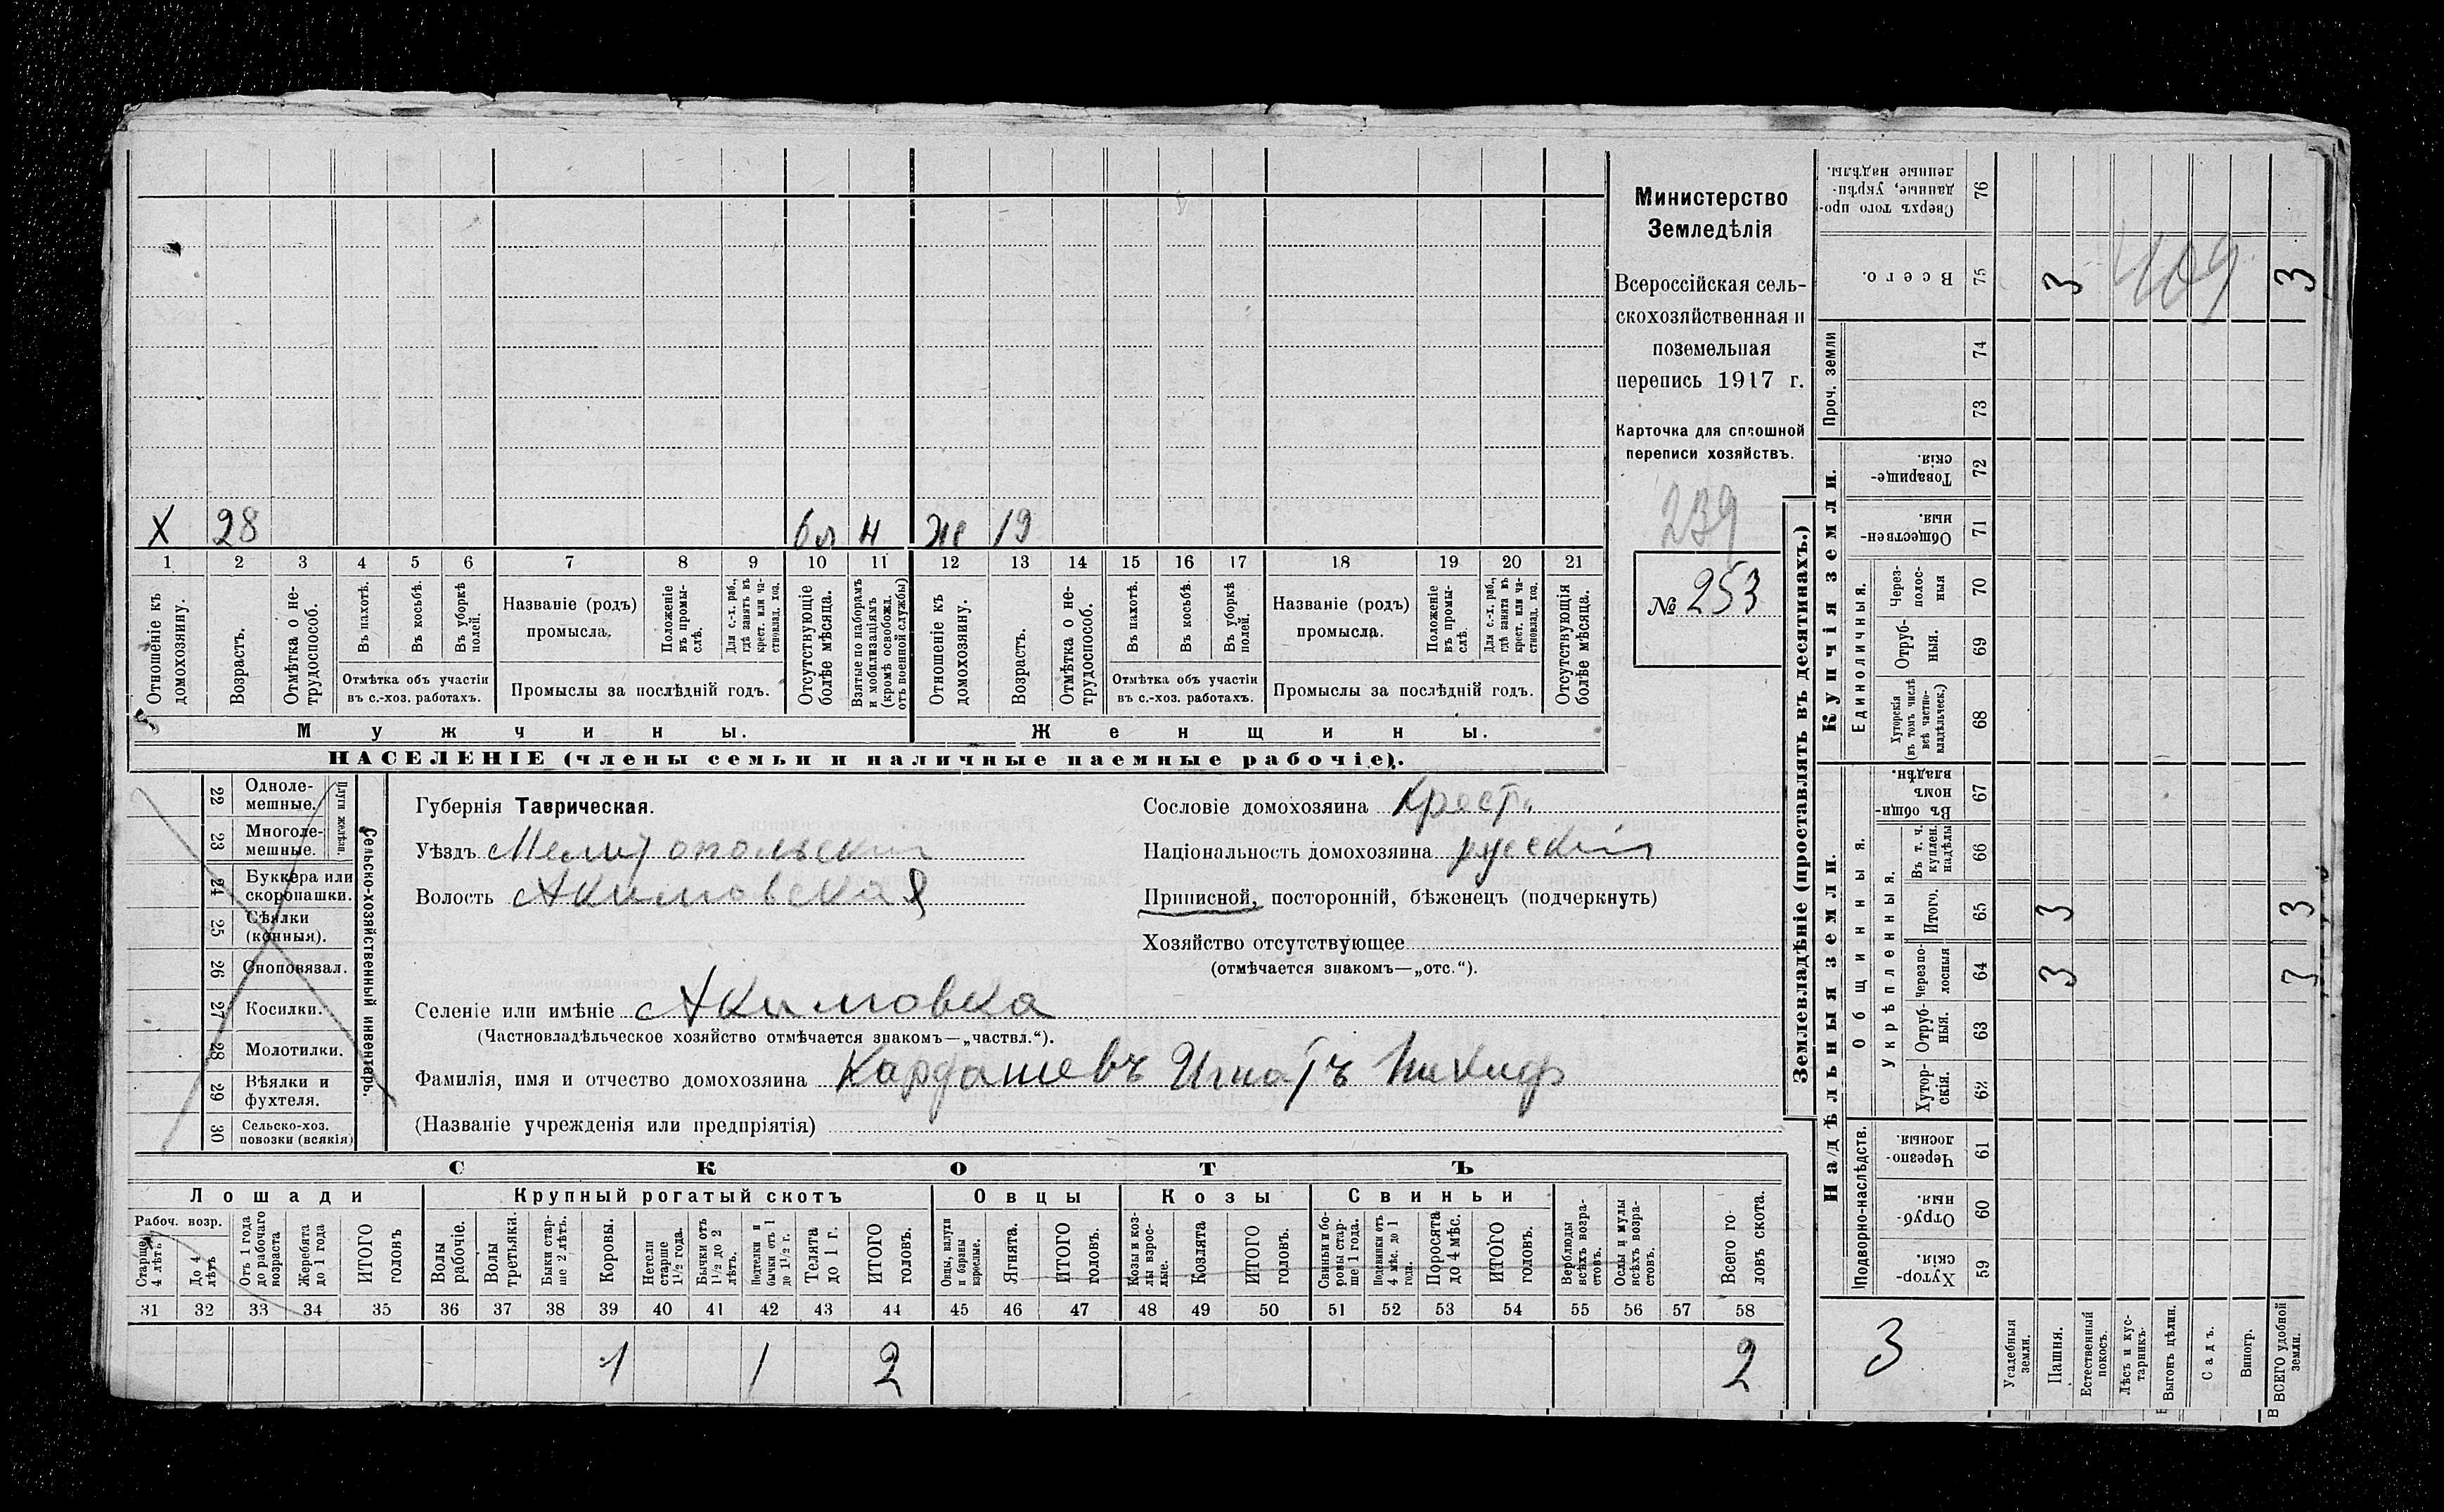 Министерство
Земледѣлія
Всероссійская сель-
скохозяйственная и
поземельная
перепись 1917 г.
Карточка для сплошной
переписи хозяйствъ.
239
№ 253
Х 28 н же 19
1 2 3 4 5 6 7 8 9 10 11 12 13 14 15 16 17 18 19 20 21
Отношеніе къ домохозяину.
Возрастъ.
Отмѣтка о не-трудоспособ.
Въ пахотѣ.
Въ косьбѣ.
Въ уборкѣ полей.
Отмѣтка объ участіи
въ с.-хоз. работахъ.
Названіе (родъ)
промысла.
Положеніе въ промы-слѣ.
Для с.-х. раб., гдѣ занятъ въ крест. или ча-стновлад. хоз.
Промыслы за послѣдній годъ.
Отсутствующіе болѣе мѣсяца.
Взятые по наборамъ и мобилизаціямъ (кромѣ освобожд. отъ военной службы)
Отношеніе къ домохозяину.
Возрастъ.
Отмѣтка о не-трудоспособ.
Въ пахотѣ.
Въ косьбѣ.
Въ уборкѣ полей.
Отмѣтка объ участіи
въ с.-хоз. работахъ.
Названіе (родъ)
промысла.
Положеніе въ промы-слѣ.
Для с.-х. раб., гдѣ занята въ крест. или ча-стновлад. хоз.
Промыслы за послѣдній годъ.
Отсутствующія болѣе мѣсяца.
Мужчины.
Женщины.
НАСЕЛЕНІЕ (члены семьи и наличные наемные рабочіе).
22 Одноле-мешные.
23 Многоле-мешные.
Плуги желѣзн.
24 Буккера или скоропашки.
25 Сѣялки (конныя).
26 Сноповязал.
27 Косилки.
28 Молотилки.
29 Вѣялки и фухтеля.
30 Сельско-хоз. повозки (всякія)
Сельско-хозяйственный инвентарь.
Губернія Таврическая.
Уѣздъ Мелитопольскій
Волость Акимовская
Сословіе домохозяина Крест.
Національность домохозяина русскій
Приписной, посторонній, бѣженецъ (подчеркнуть)
Хозяйство отсутствующее
(отмѣчается знакомъ—„отс.“).
Селеніе или имѣніе Акимовка
(Частновладѣльческое хозяйство отмѣчается знакомъ—„частвл.“).
Фамилія, имя и отчество домохозяина Кардашевъ Игнатъ Никиф
(Названіе учрежденія или предпріятія)
СКОТЪ
Лошади
Крупный рогатый скотъ
Овцы
Козы
Свиньи
Рабоч. возр.
Старше 4 лѣтъ
До 4 лѣтъ
Отъ 1 года до рабочаго возраста
Жеребята до 1 года
ИТОГО головъ
Волы рабочіе.
Волы третьяки.
Быки стар-ше 2 лѣтъ.
Коровы.
Нетели старше 1½ года.
Бычки отъ 1½ до 2 лѣтъ.
Подтелки и бычки отъ 1 до 1½ г.
Телята до 1 г.
ИТОГО головъ.
Овцы, валухи и бараны взрослые.
Ягнята.
ИТОГО головъ.
Козы и коз-лы взрос-лые.
Козлята
ИТОГО головъ.
Свиньи и бо-ровы стар-ше 1 года.
Подсвинки отъ 4 мѣс. до 1 года.
Поросята до 4 мѣс.
ИТОГО головъ.
Верблюды всѣхъ возра-стовъ.
Ослы и мулы всѣхъ возра-стовъ.
Всего го-ловъ скота.
31 32 33 34 35 36 37 38 39 40 41 42 43 44 45 46 47 48 49 50 51 52 53 54 55 56 57 58
1 1 2 2
Землевладѣніе (проставлять въ десятинахъ.)
Надѣльныя земли.
Купчія земли.
Проч. земли
Подворно-наслѣдств.
Общинныя.
Укрѣпленныя.
Единоличныя.
76 Сверхъ того про-данные, укрѣп-ленные надѣлы.
75 Всего. 3 409 3
74
73
72 Товарище-скія.
71 Обществен-ныя.
70 Через-полос-ныя
69 Отруб-ныя.
68 Хуторскія (въ томъ числѣ всѣ частно-владѣльческ.)
67 Въ общин-номъ владѣн.
66 Въ т. ч. куплен. надѣлы
65 Итого. 3 3
64 Черезпо-лосныя 3 3
63 Отруб-ныя.
62 Хутор-скія.
61 Черезпо-лосныя.
60 Отруб-ныя.
59 Хутор-скія.
3
Усадебныя земли.
Пашня.
Естественный покосъ.
Лѣсъ и кус-тарникъ.
Выгонъ цѣлин.
Садъ.
Виногр.
ВСЕГО удобной земли.